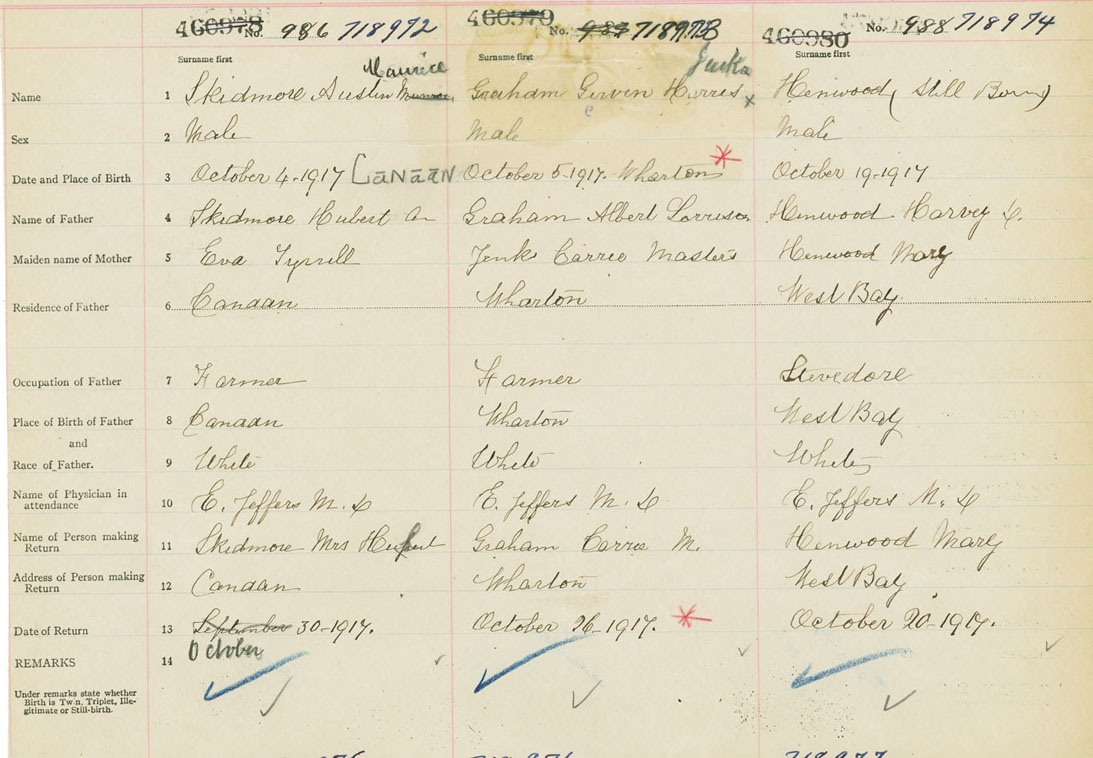 460978 No. 986 718972 460979 No. 987 718973 460980 No. 988 718974
Surname first Surname first Surname first
Maurice Jenks
Name 1 Skidmore Austin Graham Girvin Harris x Henwood (Still Born)
e
Sex 2 Male Male Male
Date and Place of Birth 3 October 4-1917 CANAAN October 5-1917. Wharton October 19-1917
Name of Father 4 Skidmore Hubert Graham Albert Lorrison Henwood Harvey L.
Maiden name of Mother 5 Eva Tyrrell Jenks Carrie Masters Henwood Mary
Residence of Father 6 Canaan Wharton West Bay
Occupation of Father 7 Farmer Farmer Stevedore
Place of Birth of Father 8 Canaan Wharton West Bay
and
Race of Father. 9 White White White
Name of Physician in
attendance 10 E. Jeffers M. D E. Jeffers M. D E. Jeffers M. D
Name of Person making
Return 11 Skidmore Mrs Hubert Graham Carrie M. Henwood Mary
Address of Person making
Return 12 Canaan Wharton West Bay
Date of Return 13 September 30-1917. October 26-1917. October 20-1917.
October
REMARKS 14
Under remarks state whether
Birth is Twin, Triplet, Ille-
gitimate or Still-birth.